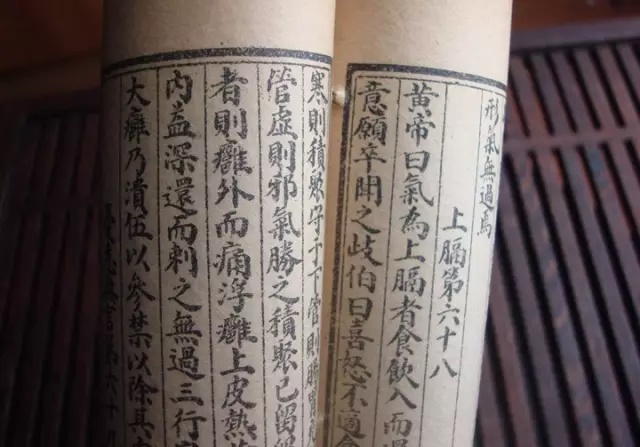 形氣無過焉
上膈第六十八
黄帝曰氣為上膈者食飲入而還
意願卒聞之歧伯曰喜怒不適食
寒則積聚守于下管則腸胃
管虛則邪氣勝之積聚已留
者則癰外而痛浮癰上皮熱
內益深還而刺之無過三行
大癰乃潰伍以參禁以除其